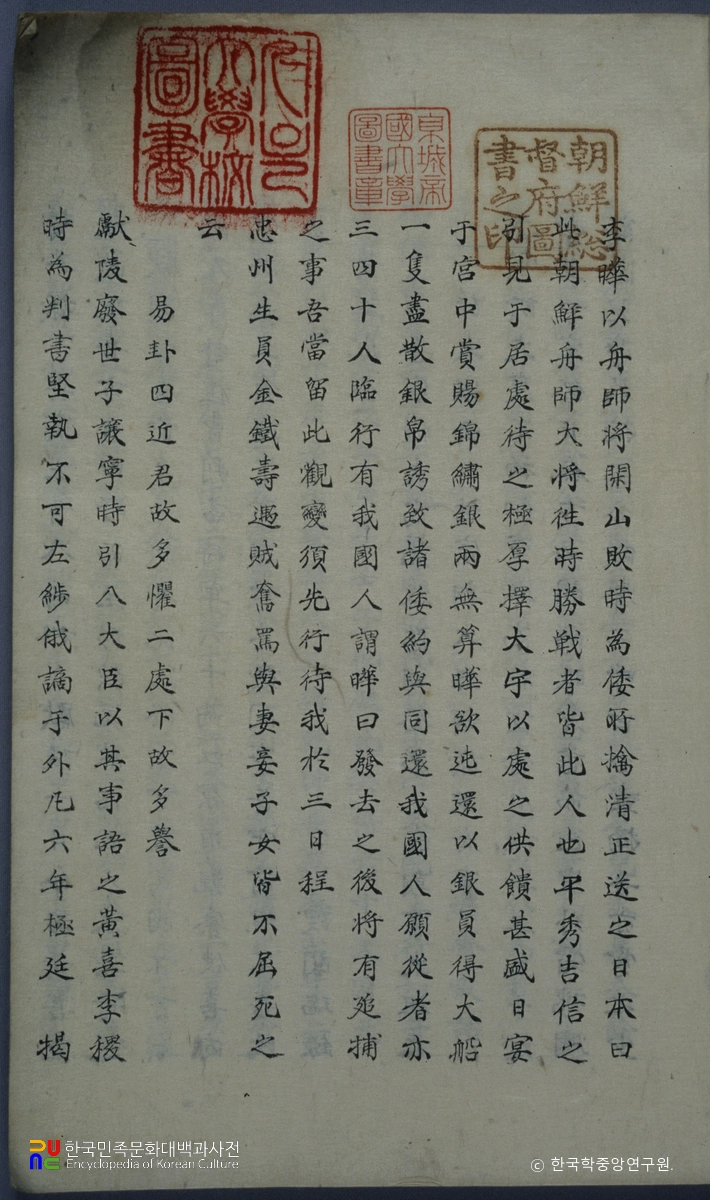 朝鮮総
督府圖
書之印
京城帝
國大學
圖書章
大學校
圖書
李曄以舟師将閑山敗時為倭所擒清正送之日本曰
此朝鮮舟師大将徃時勝戦者皆此人也平秀吉信之
引見于居處待之極厚擇大宇以處之供饋甚盛日宴
于宫中賞賜錦繡銀兩無算曄欲迯還以銀員得大船
一隻盡散銀帛誘致諸倭約與同還我國人願從者亦
三四十人臨行有我國人謂曄曰發去之後将有追捕
之事吾當留此觀變須先行待我於三日程
忠州生員金鐵壽遇賊奮罵與妻妾子女皆不屈死之
云
易卦四近君故多懼二處下故多譽
獻陵廢世子讓寧時引八大臣以其事語之黃喜李稷
時為判書堅執不可左㣥俄謫于外凡六年極廷揭
한국민족문화대백과사전
Encyclopedia of Korean Culture
© 한국학중앙연구원.